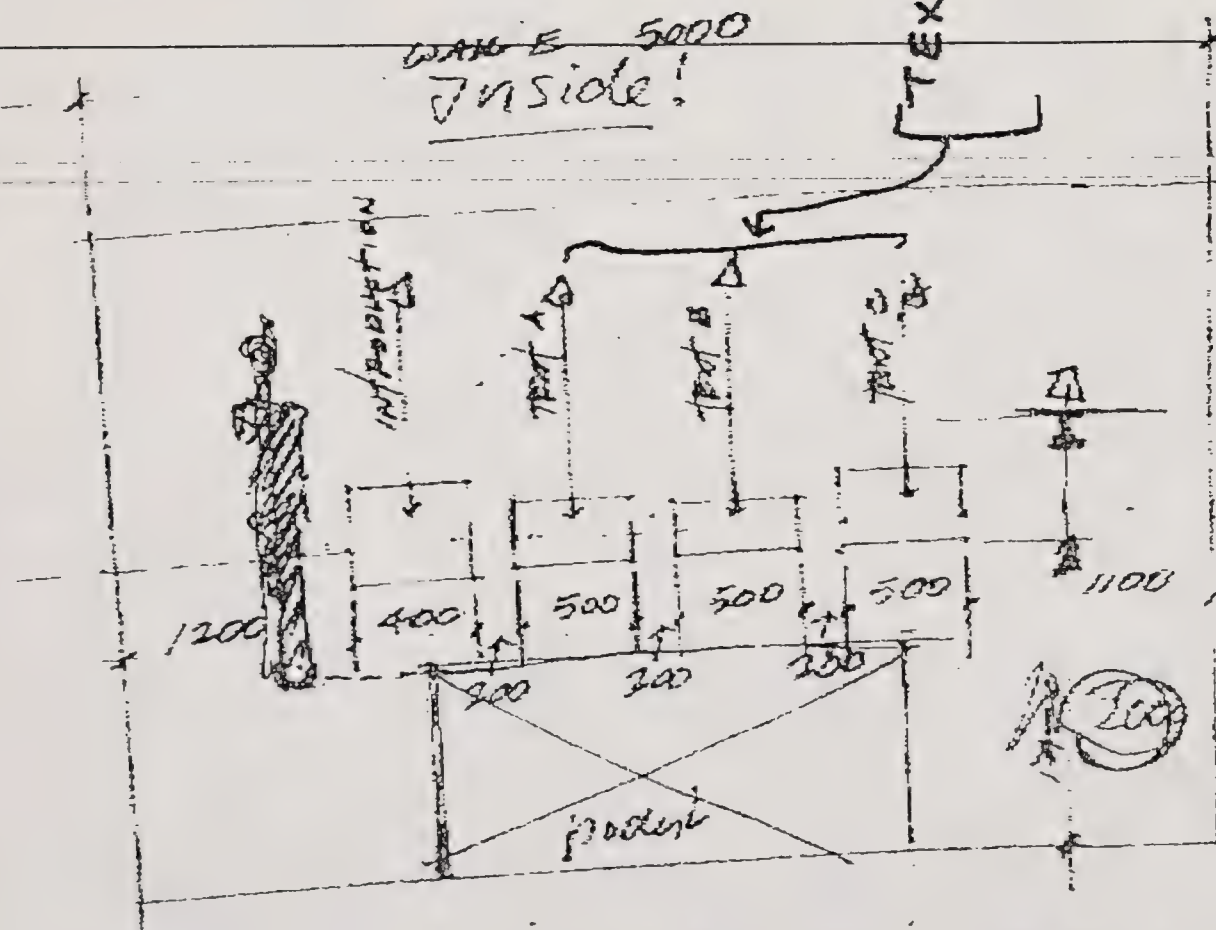 WALL E 5000
Inside!
TEX
INTRODUCTION
TEXT A
TEXT B
TEXT
1200
400
500
500
500
1100
200
200
2000
podest